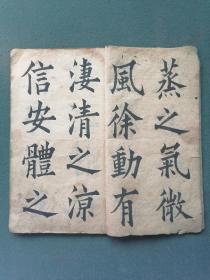 蒸之氣微
風徐動有
淒清之涼
信安體之